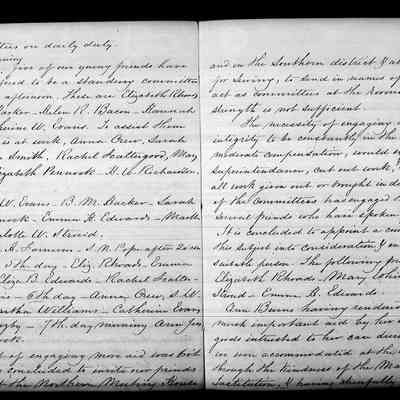 ttees on daily duty.
five of our young friends have
to be a standing committee
afternoon. These are Elizabeth Rhoads
Hacker - Helen R. Bacon - Hannah
W. Evans. To assist them
is at work, Anna Crew, Sarah
Smith, Rachel Scattergood, Mary
Elizabeth Pennock - R. W. Richardson.
W. Evans - B. M. Hacker - Sarah
ook - Emma H. Edwards - Math
W. Stroud.
H. Farnum - S. N. Pope after 20
5th day - Eliz. Rhoads - Emma
Eliza B. Edwards - Rachel Scatter-
6th day - Anna Crew, S. W.
Williams - Catherine Evans
7th day morning Ann Jan
ook.
of engaging more aid was
concluded to invite new friends
of the Northern Meeting House
and in the Southern district, & al
for Sewing, to send in names of
act as Committees at the rooms
strength is not sufficient.
The necessity of engaging a
integrity to be constantly in the
moderate compensation, would
Superintendance, cut out work, &
all work given out or brought in
of the Committees has engaged
Several friends who have spoken
It is concluded to appoint a com
this subject into consideration, &
suitable person. The following
Elizabeth Rhoads - Mary
Stroud - Emma H. Edwards.
Ann Burns having rendered
much important aid by her
goods intrusted to her care
in our accommodated at the
through the kindness of the Ma
Institution, & having cheerfully